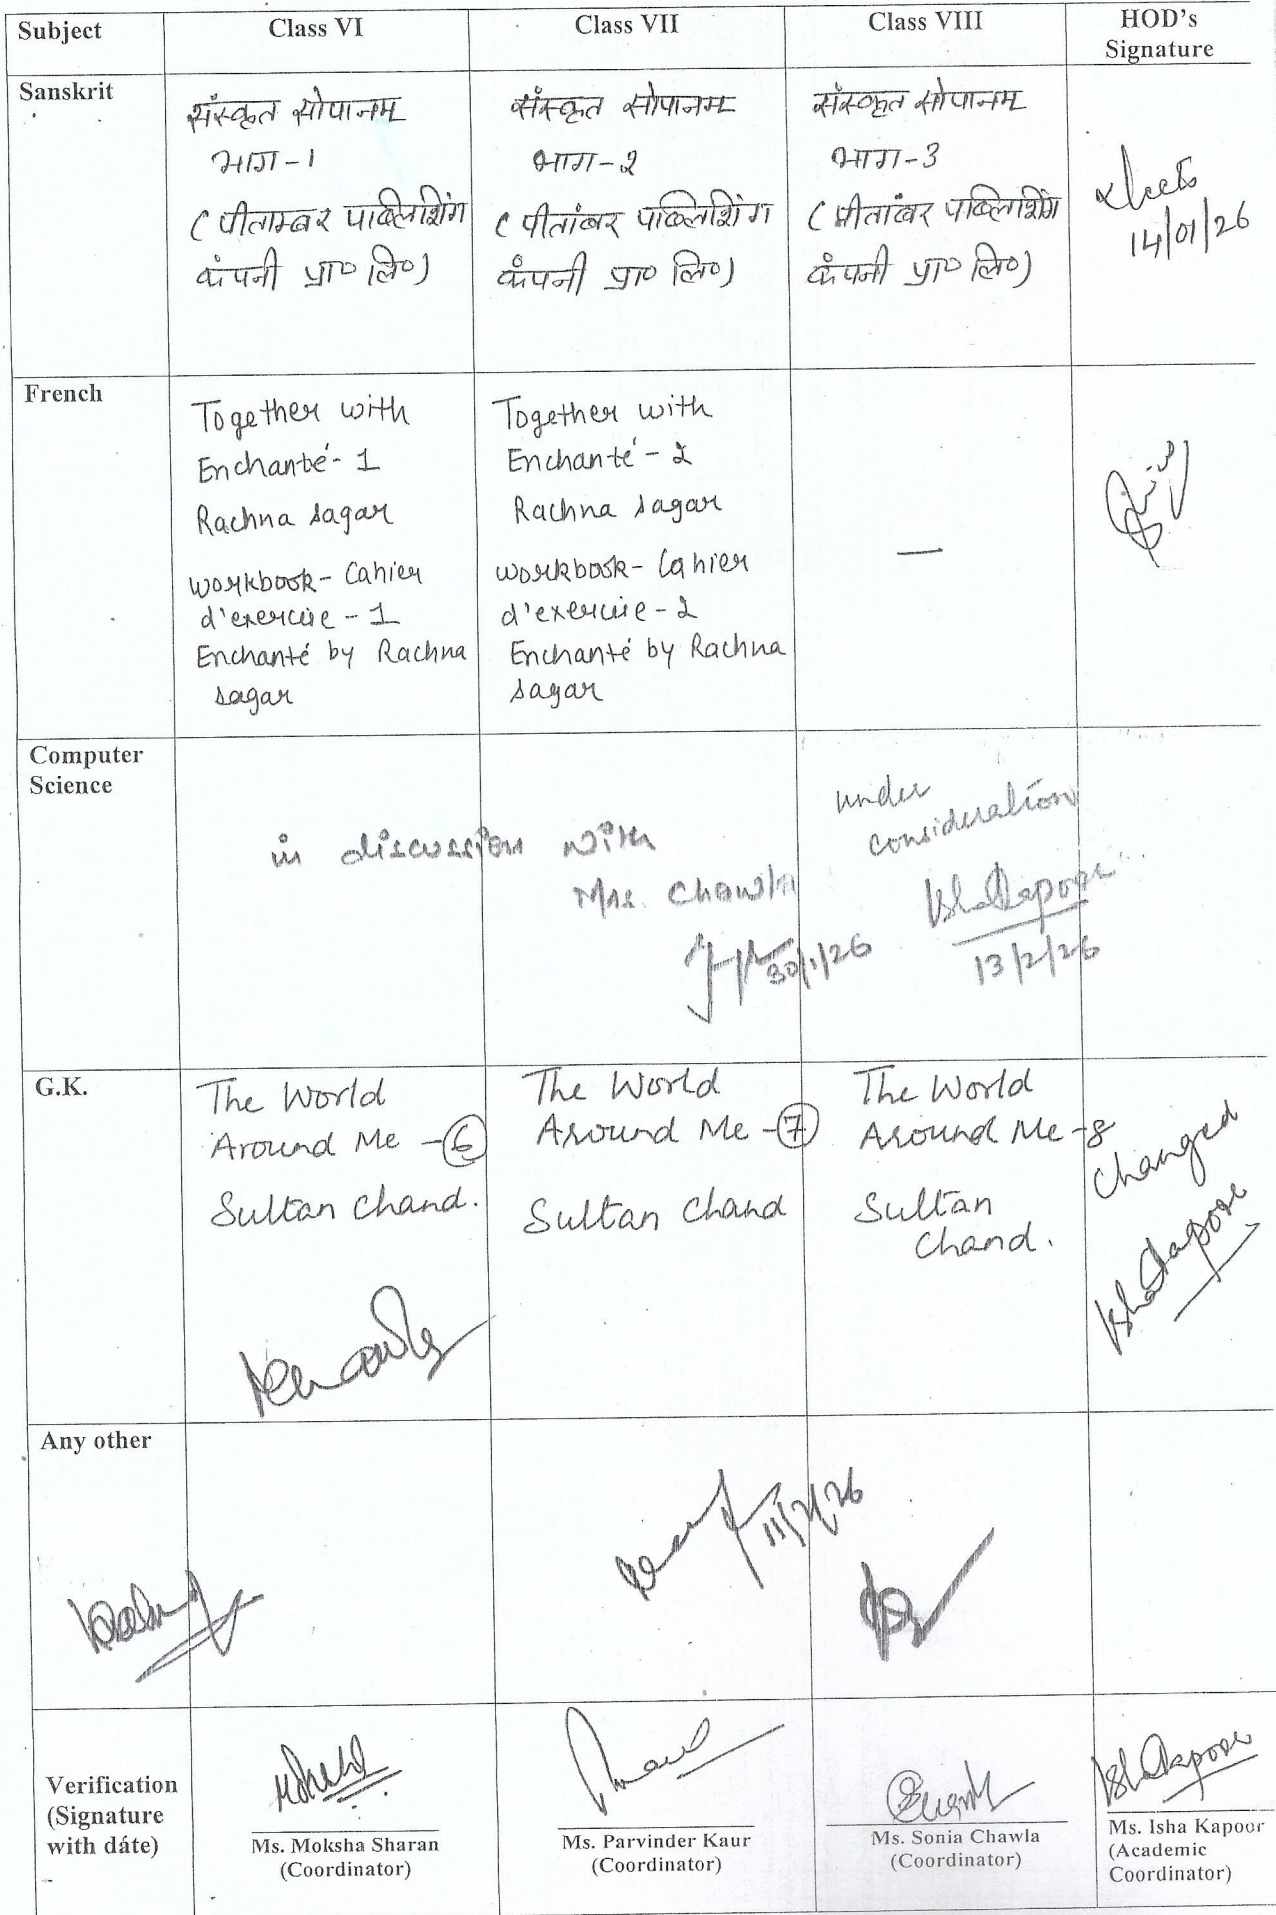 Subject
Class VI
Class VII
Class VIII
HOD's
Signature
Sanskrit
संस्कृत सोपानम
भाग-1
(पीताम्बर पब्लिशिंग
कंपनी प्रा० लि०)
संस्कृत सोपानम
भाग-2
(पीतांबर पब्लिशिंग
कंपनी प्रा० लि०)
संस्कृत सोपानम
भाग-3
(पीतांबर पब्लिशिंग
कंपनी प्रा० लि०)
14/01/26
French
Together with
Enchanté-1
Rachna Sagar
Workbook-Cahier
d'exercise-1
Enchanté by Rachna
Sagar
Together with
Enchanté-2
Rachna Sagar
Workbook-Cahier
d'exercise-2
Enchanté by Rachna
Sagar
—
Computer
Science
in discussion with
Mrs. Chawla
30/1/26
under
consideration
Isha Kapoor
13/2/26
G.K.
The World
Around Me -6
Sultan Chand.
The World
Around Me -7
Sultan Chand
The World
Around Me -8
Sultan
Chand.
Changed
Isha Kapoor
Any other
11/2/26
Verification
(Signature
with date)
Moksha
Ms. Moksha Sharan
(Coordinator)
Ms. Parvinder Kaur
(Coordinator)
Ms. Sonia Chawla
(Coordinator)
Isha Kapoor
Ms. Isha Kapoor
(Academic
Coordinator)